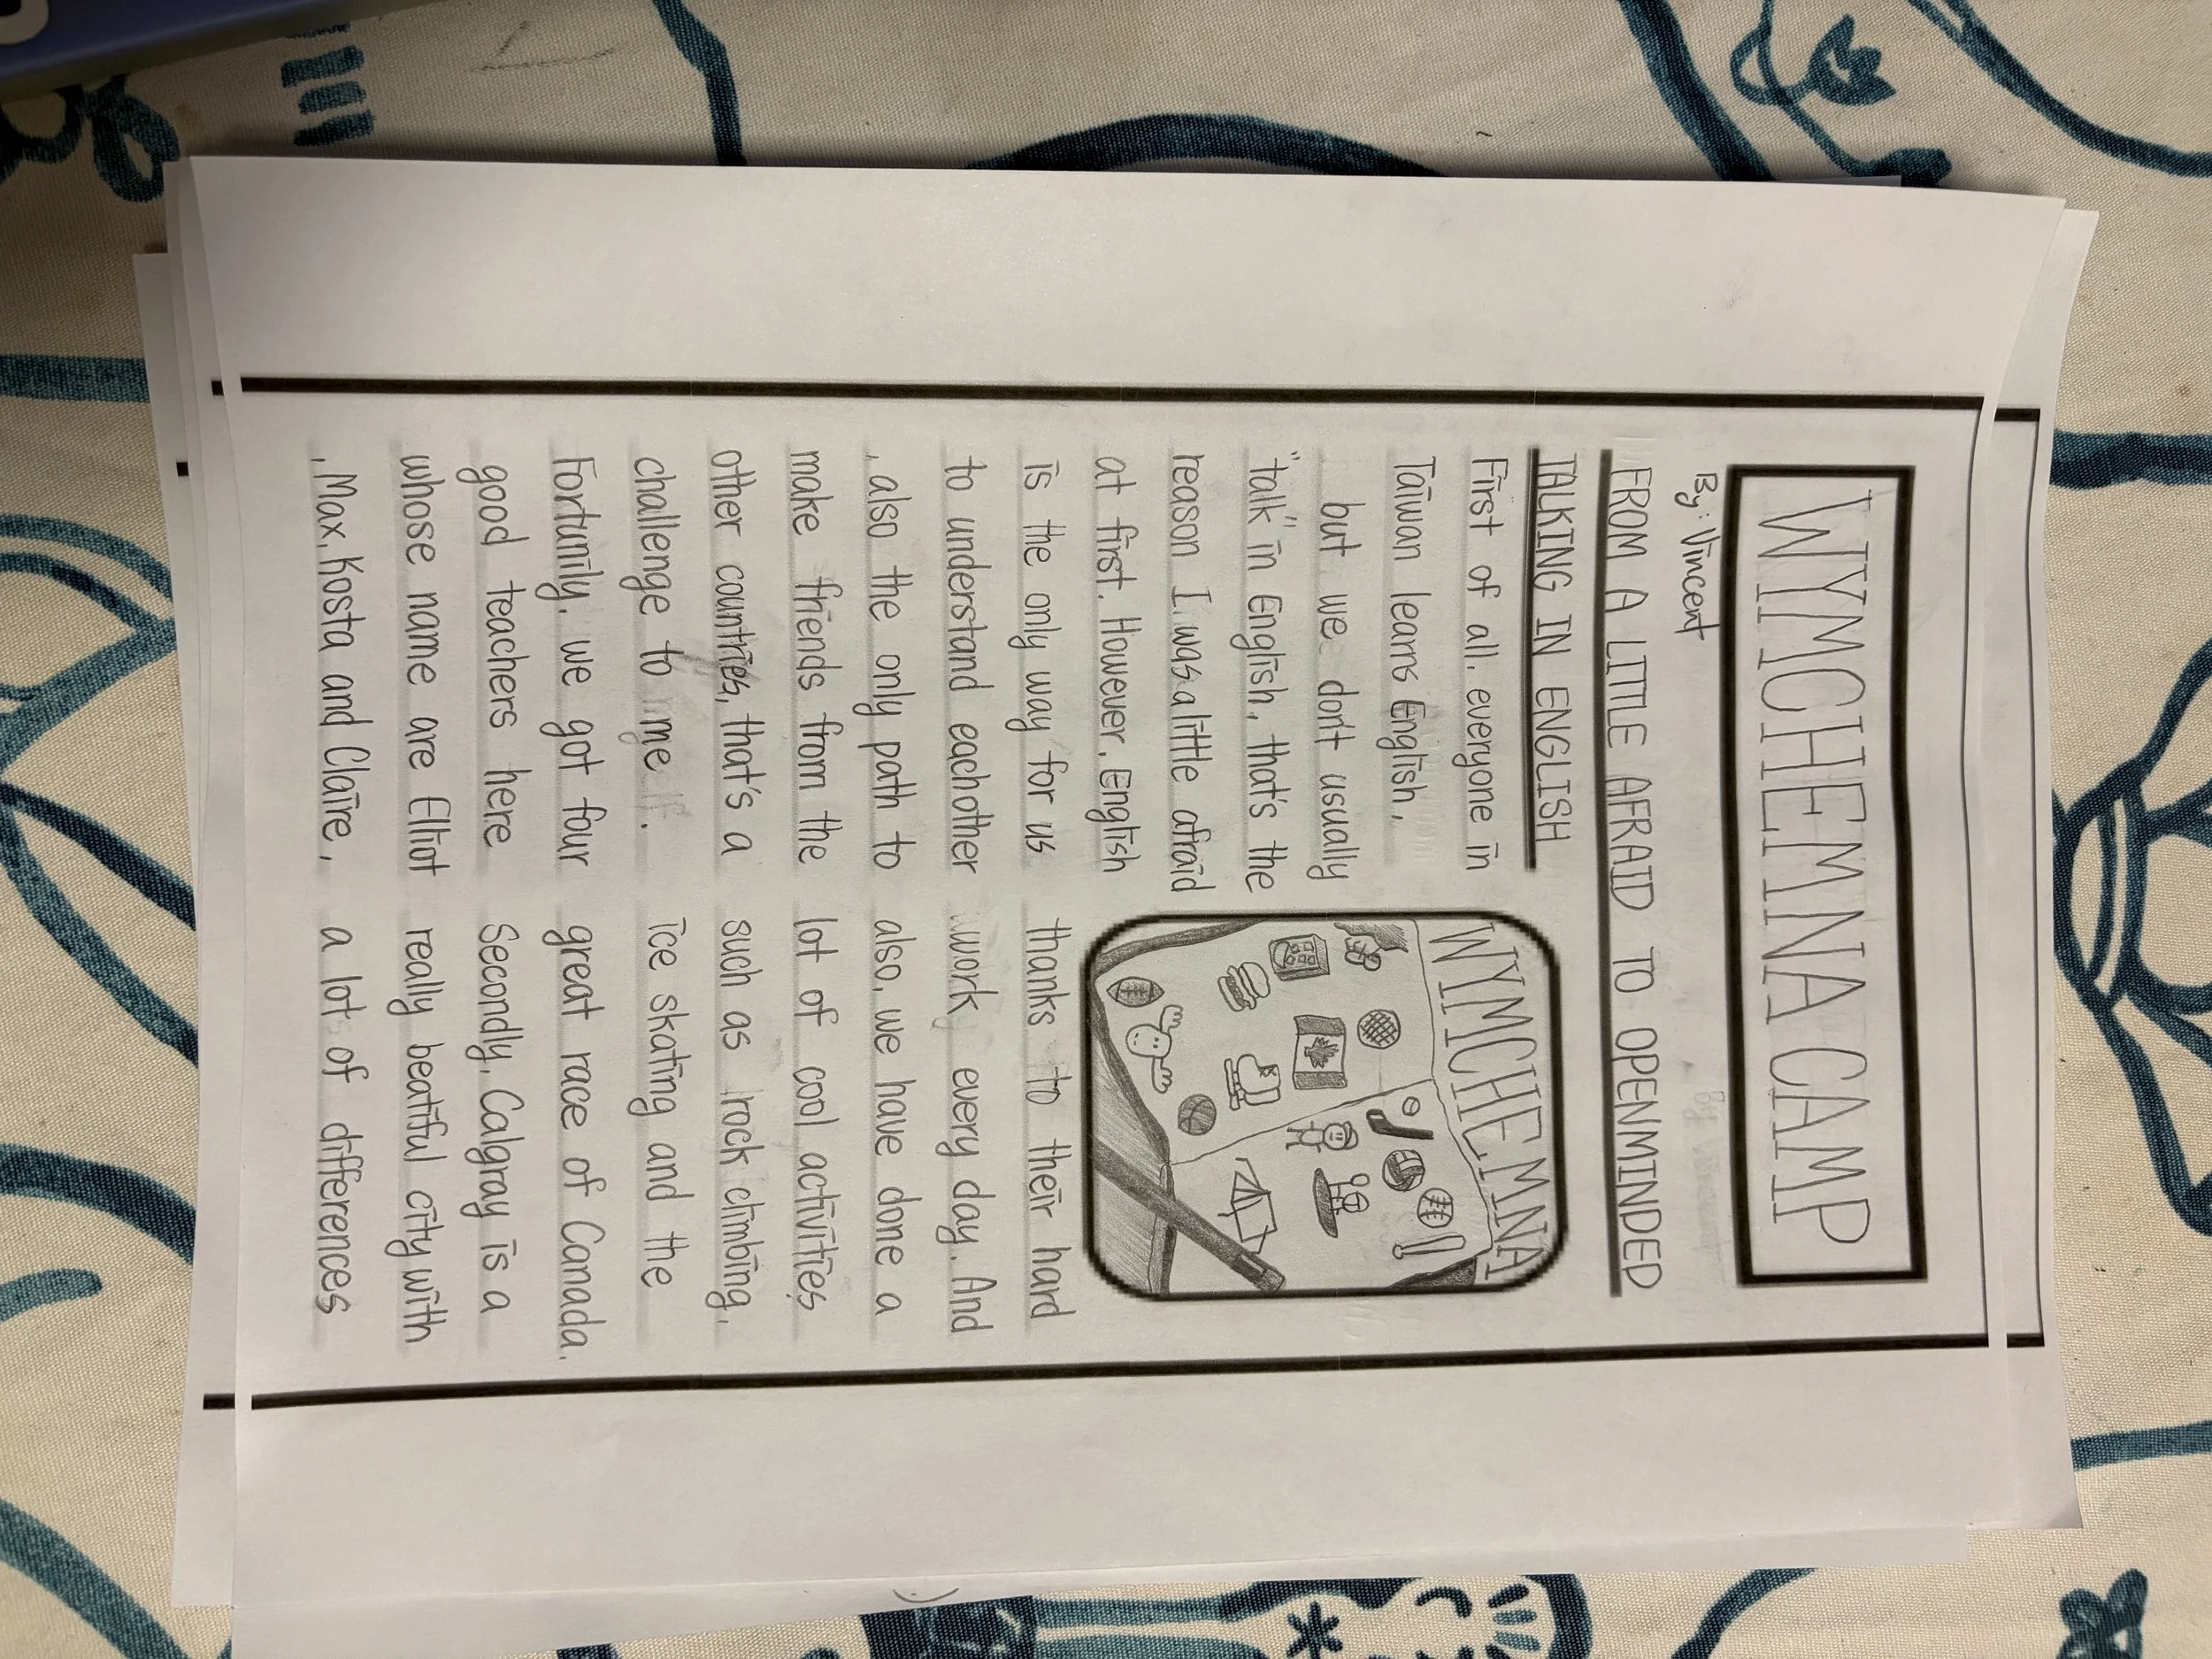 WYMCHEMNA CAMP
By: Vincent
FROM A LITTLE AFRAID TO OPENMINDED
TALKING IN ENGLISH
First of all, everyone in
Taiwan learns English,
but we don't usually
"talk" in English, that's the
reason I was a little afraid
at first. However, English
is the only way for us
to understand eachother
, also the only path to
make friends from the
other countries, that's a
challenge to me.
Fortunily, we got four
good teachers here
whose name are Elliot
, Max, Kosta and Claire,
WYMCHEMNA
thanks to their hard
work every day. And
also, we have done a
lot of cool activities
such as rock climbing,
ice skating and the
great race of Canada.
Secondly, Calgray is a
really beatiful city with
a lot of differences